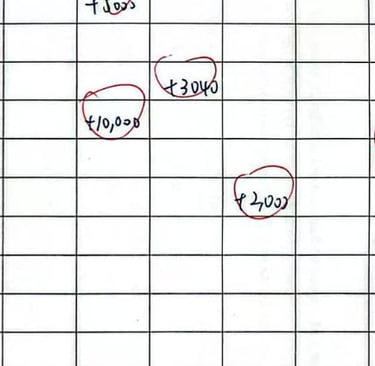 +3040
+10,000
+2,000